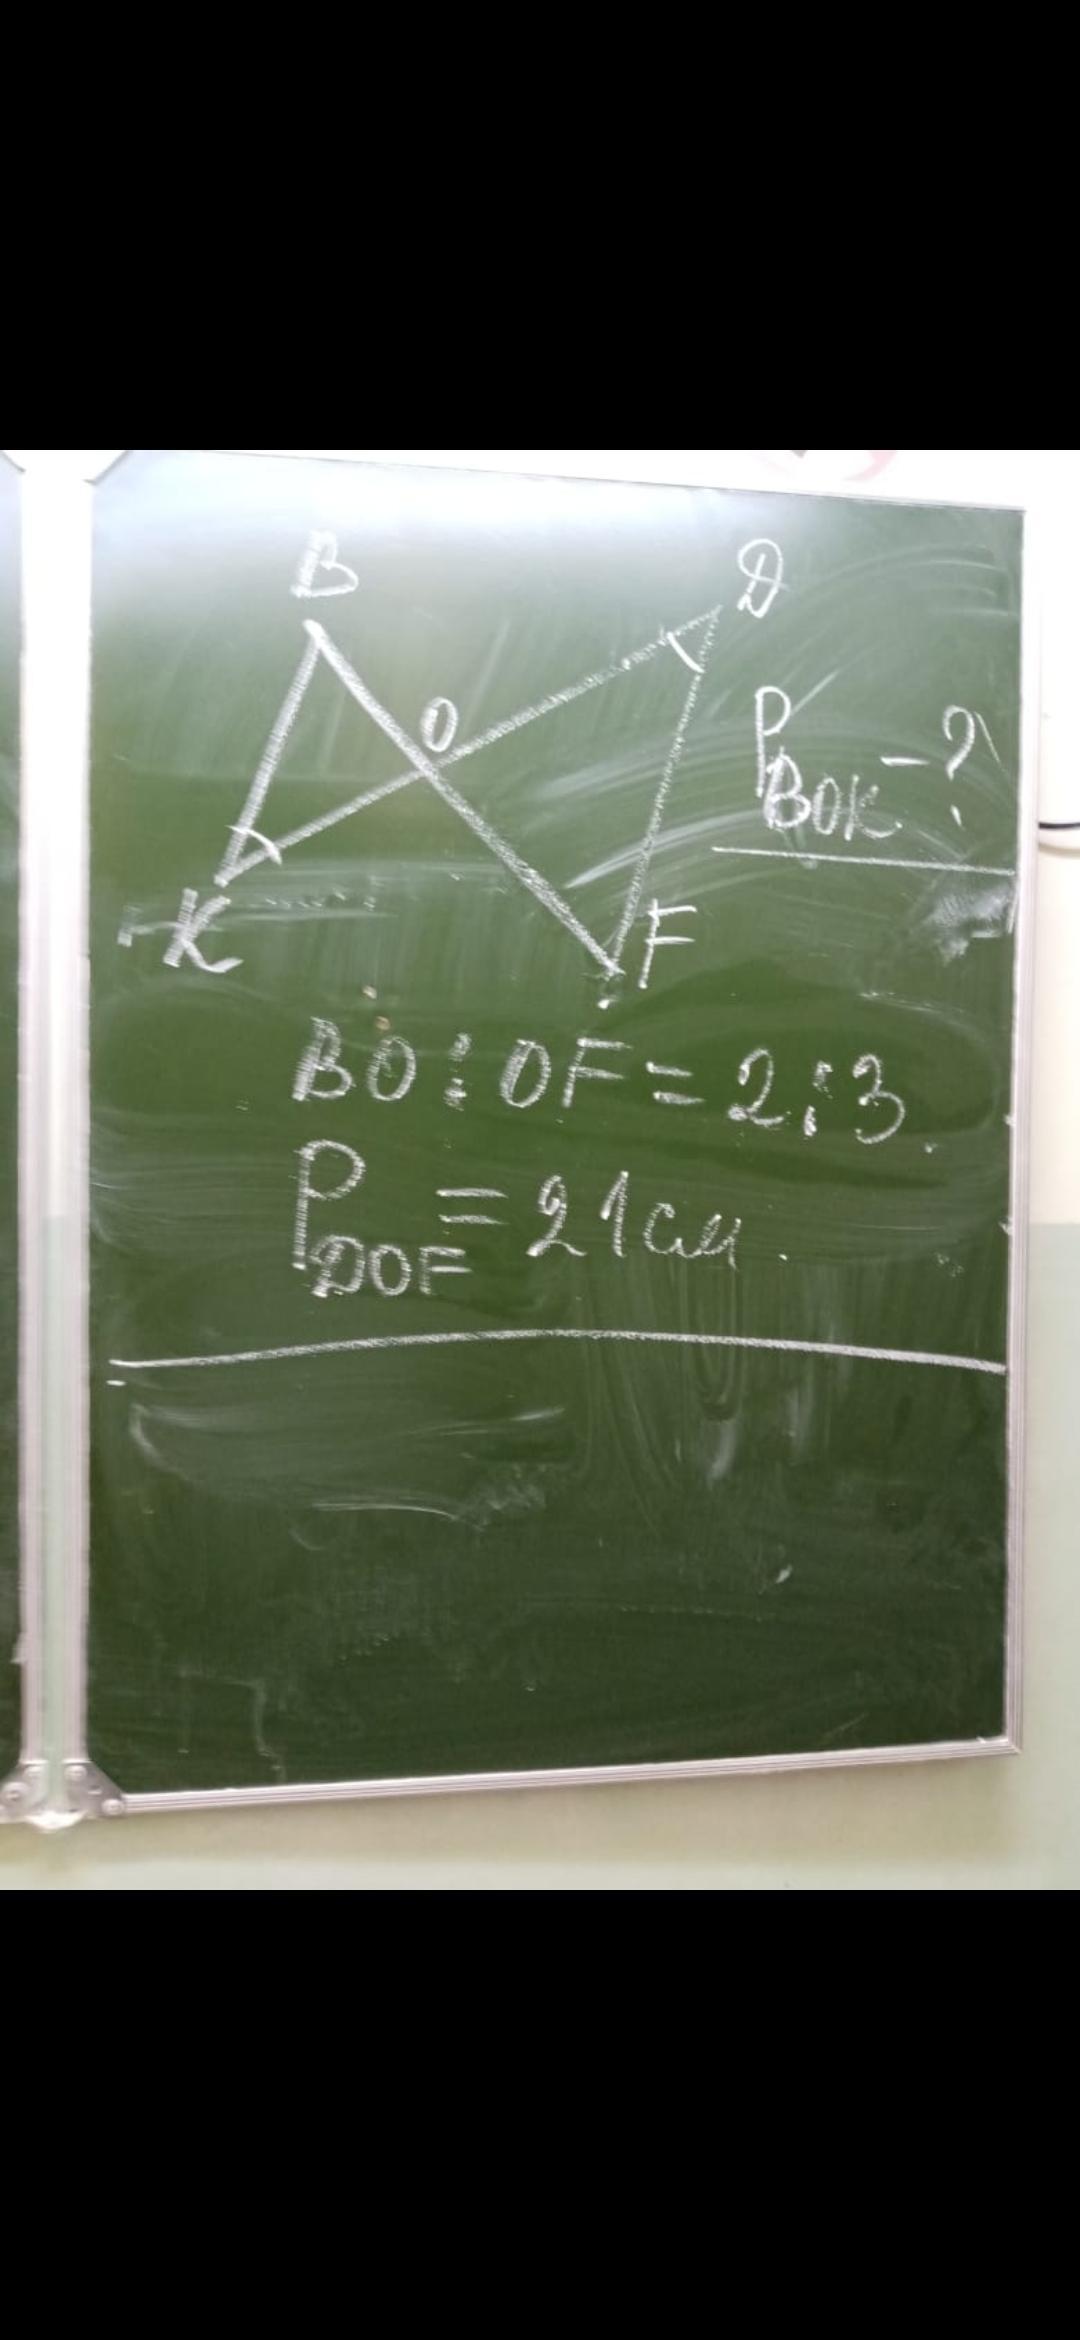 B
D
O
P BOK - ?
K
F
BO : OF = 2 : 3.
P DOF = 21 см.